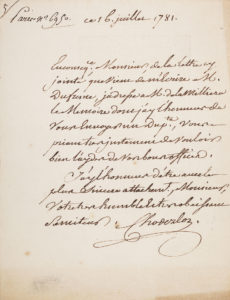 ce 16. juillet 1781.
Monsieur de la lettre cy
jointe que vient de m'écrire M.
Dufresne, j'adresse à M. de la
le Mémoire dont j'ay l'honneur de
Vous Envoyer un Dupta, Vous
priant très instamment de Vouloir
bien l'ayder de Vos bons offices.
J'ay l'honneur d'être avec le
plus Sincere attachement, Monsieur,
Votre très humble et très obeissant
Serviteur.